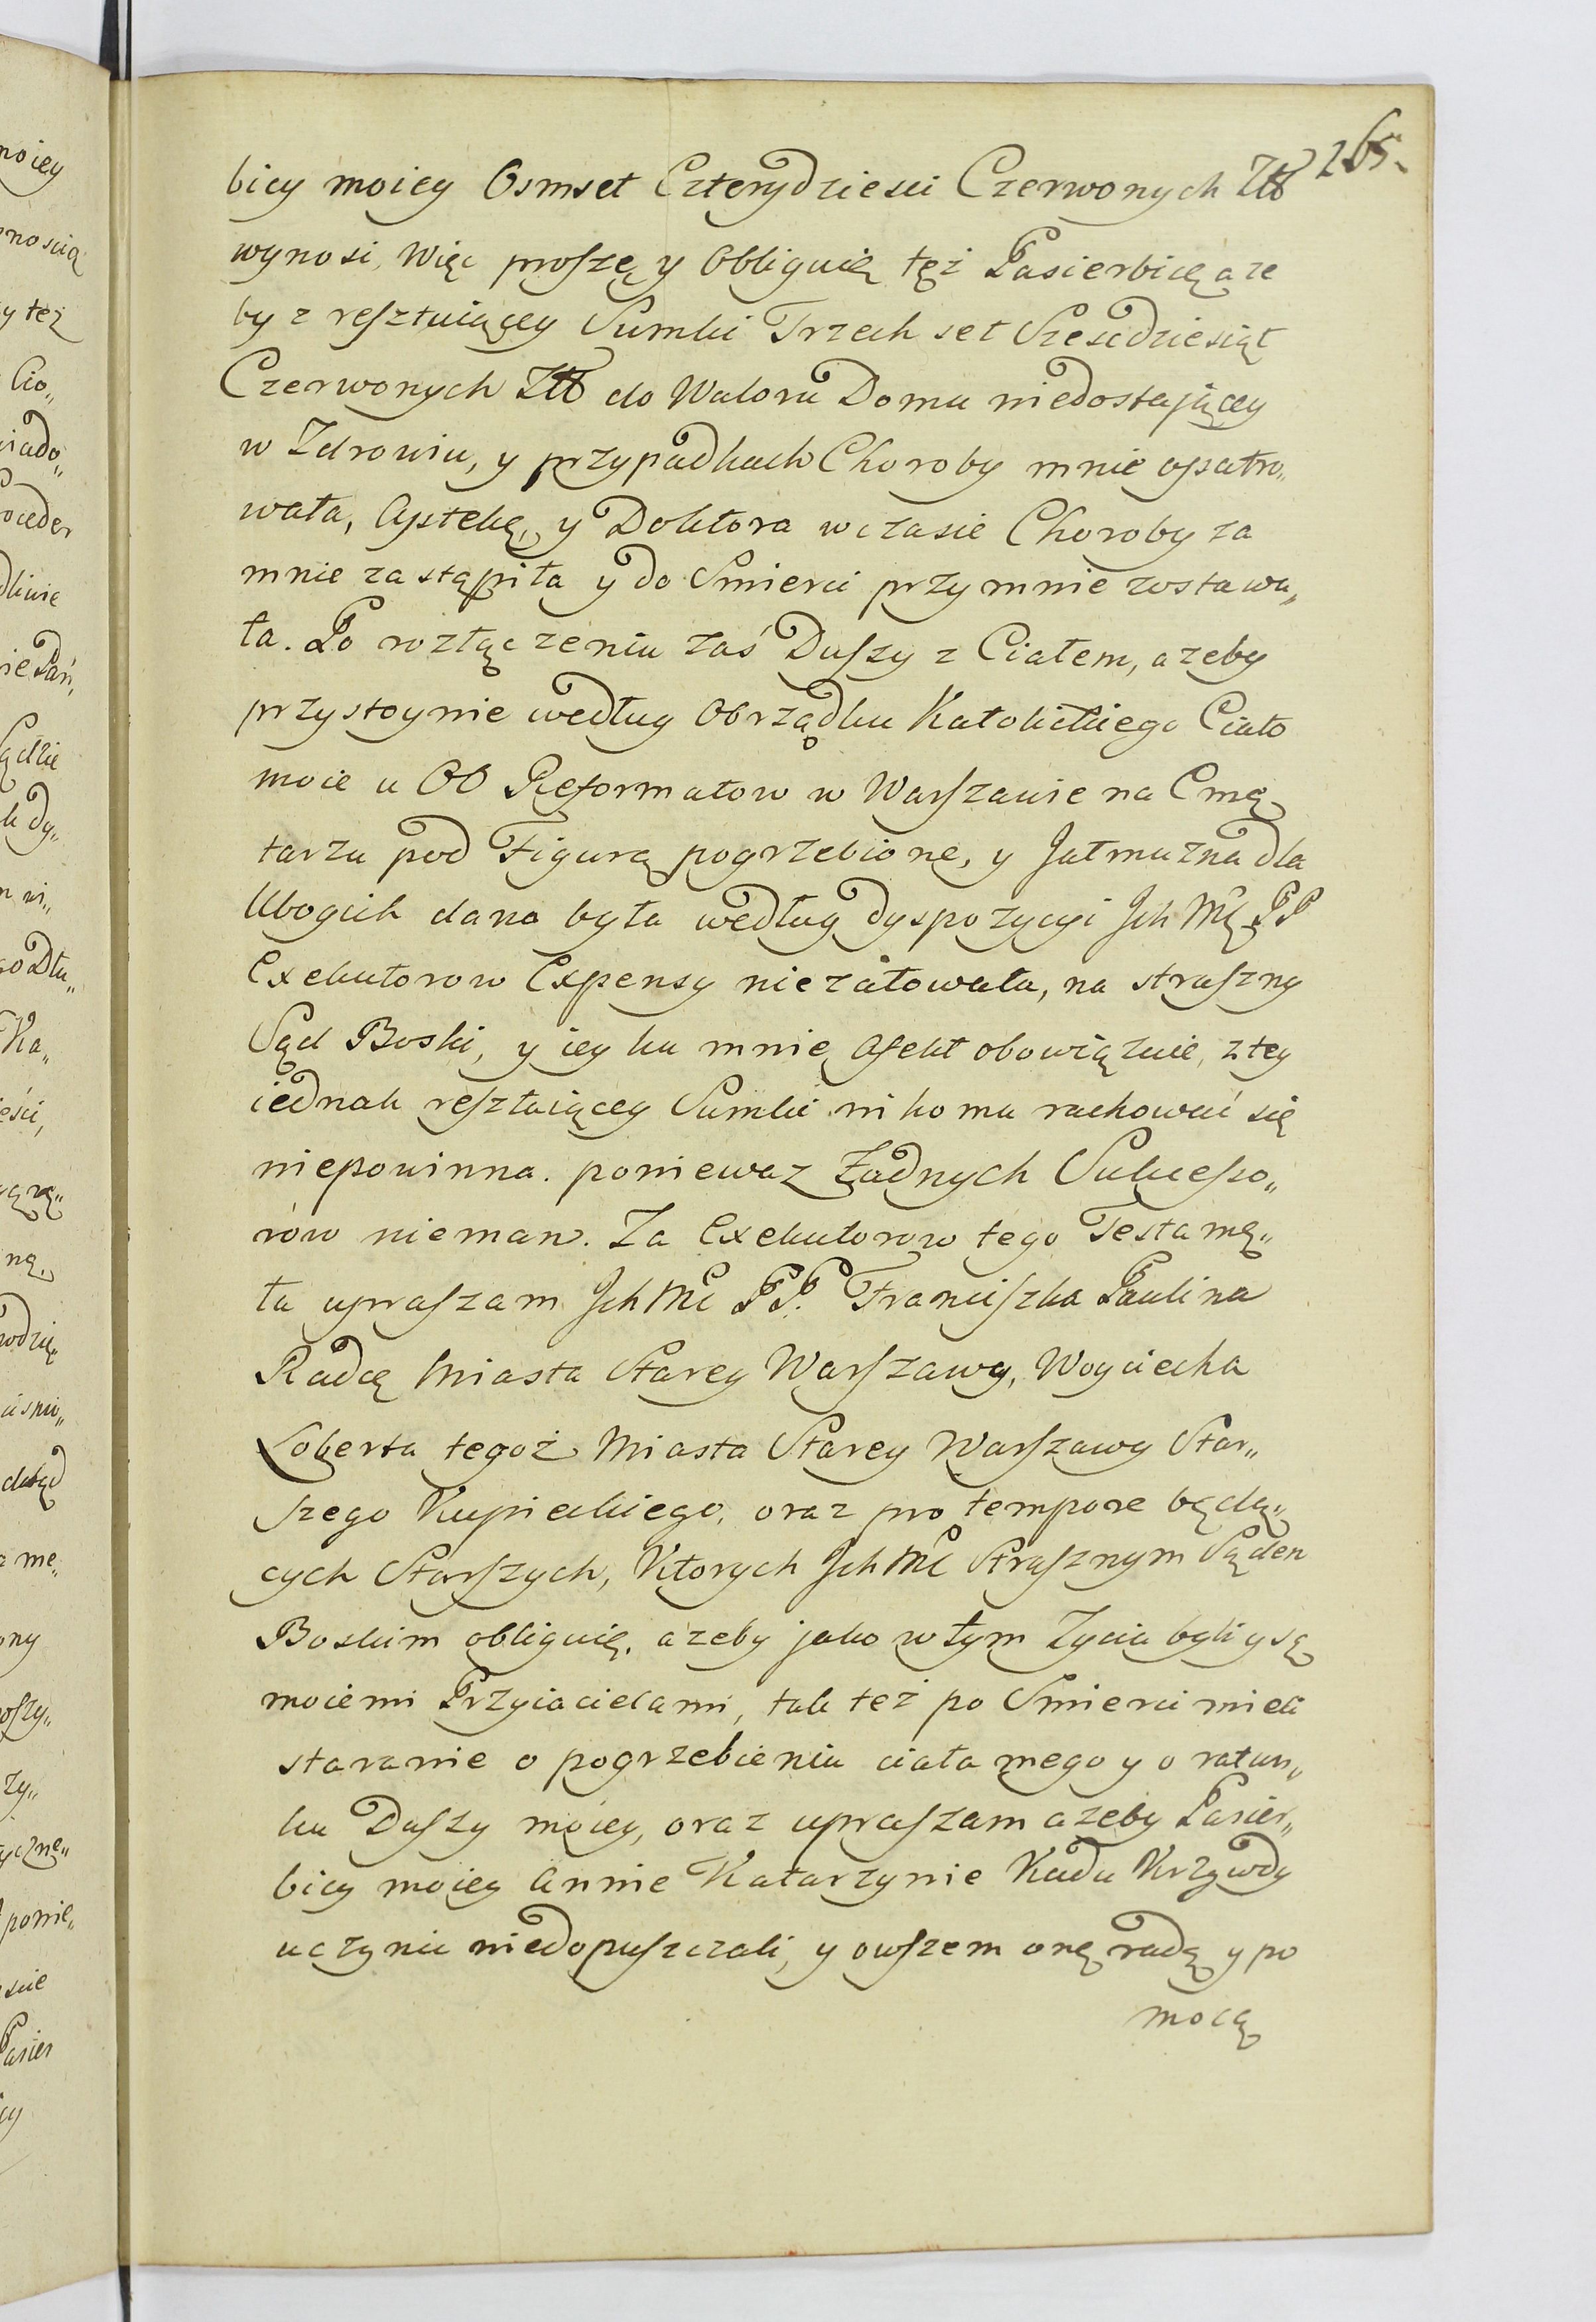 265.
bicy moiey Osmset Czterydziesci Czerwonych Złł
wynosi, Więc proszę y Obliguię tęż Pasierbicę aze
by z resztuiącey Sumki Trzech set Szescdziesiąt
Czerwonych Złł do Waloru Domu niedostającey
w Zdrowiu, y przypadkach Choroby mnie opatro„
wała, Aptekę, y Doktora w czasie Choroby za
mnie zastąpiła y do Smierci przy mnie zostawa„
ła. Po rozłączeniu zaś Duszy z Ciałem, azeby
przystoynie według Obrządku Katolickiego Ciało
moie u OO Reformatow w Warszawie na Cmę
tarzu pod Figurą pogrzebione, y Jałmuzna dla
Ubogich dana była według dyspozycyi Ich Mę PP
Exekutorow Expensy nie załowała, na straszny
Sąd Boski, y iey ku mnie Afekt obowiązuie, z tey
iednak resztuiącey Sumki nikomu rachować się
niepowinna. poniewaz Żadnych Sukcesso„
rów niemam. Za Exekutorow tego Testamę„
tu upraszam Ich Mć PP. Franciszka Paulina
Radcę Miasta Starey Warszawy, Woyciecha
Loberta tegoż Miasta Starey Warszawy Star„
szego Kupieckiego, oraz pro tempore będą„
cych Starszych, Ktorych Ich Mć Strasznym Sądem
Boskim obliguię, azeby jako w tym Zyciu byli y są
moiemi Przyiacielami, tak też po Smierci mieli
staranie o pogrzebieniu ciała mego y o ratun„
ku Duszy moiey, oraz upraszam azeby Pasier„
bicy moiey Annie Katarzynie Kadu Krzywdy
uczynic niedopuszczali, y owszem onę radą y po
mocą